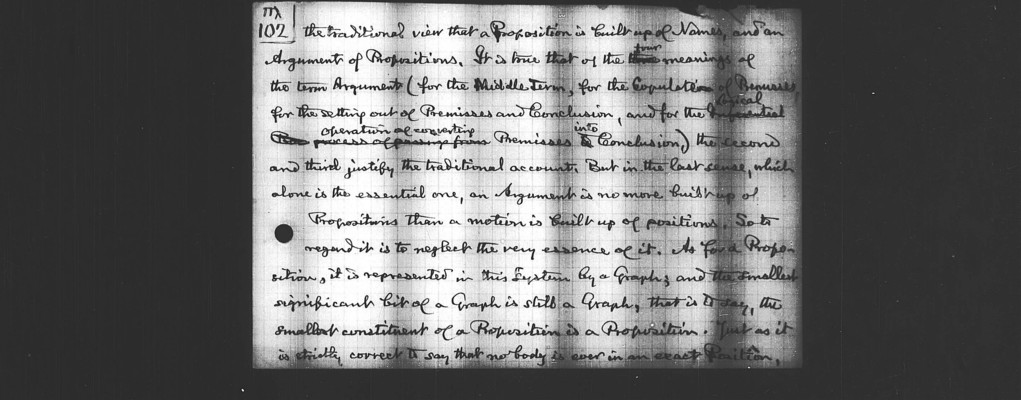 102
the traditional view that a Proposition is built up of Names, and an
Argument of Propositions. It is true that of the four meanings of
the term Argument (for the Middle Term, for the Copulation of Premisses,
for the setting out of Premisses and Conclusion, and for the logical
operation of converting Premisses into Conclusion,) the second
and third justify the traditional account. But in the last sense, which
alone is the essential one, an Argument is no more built up of
Propositions than a motion is built up of positions. So to
regard it is to neglect the very essence of it. As for a Propo-
sition, it is represented in this System by a Graph; and the smallest
significant bit of a Graph is still a Graph; that is to say, the
smallest constituent of a Proposition is a Proposition. Just as it
is strictly correct to say that nobody is ever in an exact Position,